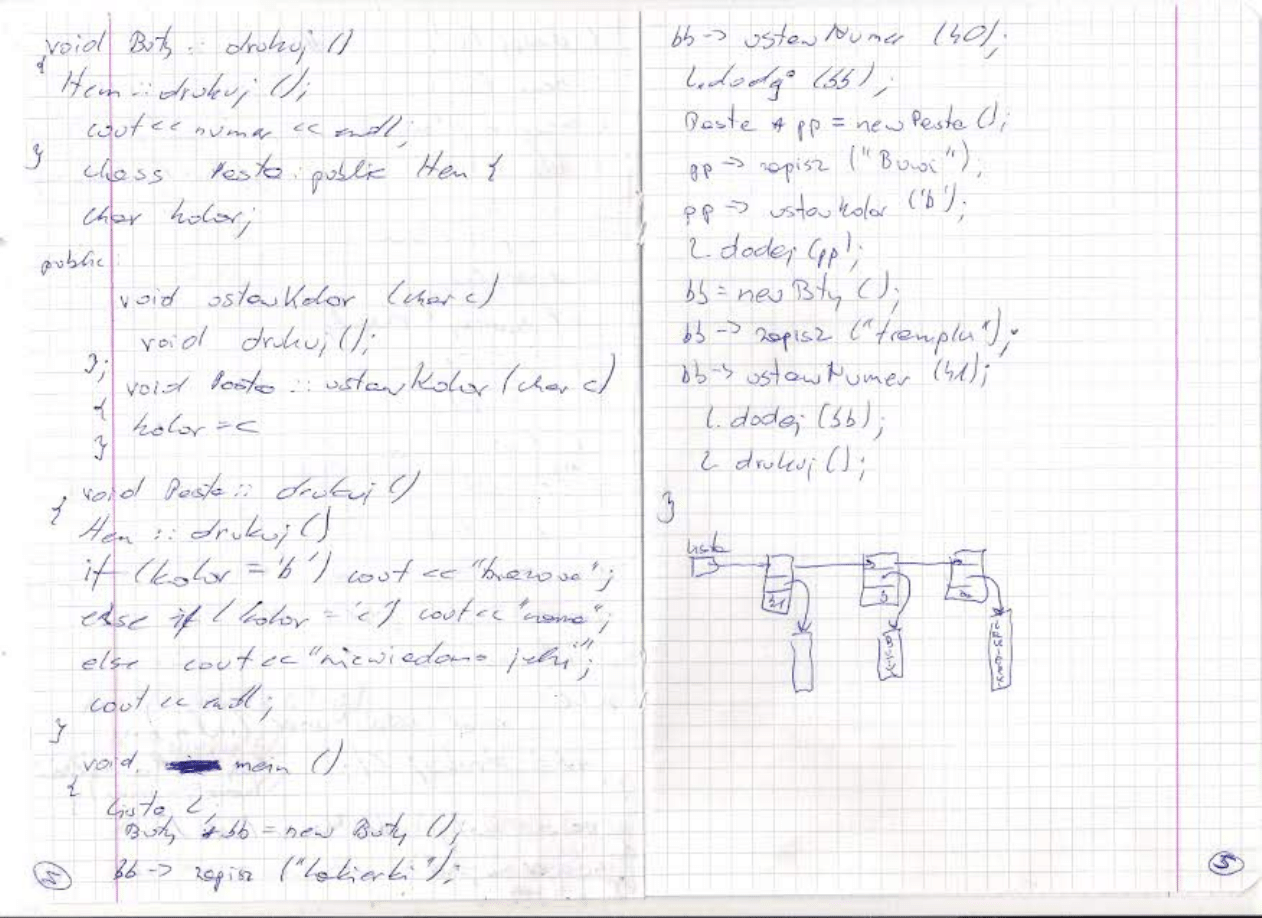 void Buty :: drukuj ()
{
Item :: drukuj ();
cout << numer << endl;
}
class Pasta : public Item {
char kolor;
public:
void ustawKolor (char c)
void drukuj ();
};
void Pasta :: ustawKolor (char c)
{
kolor = c
}
void Pasta :: drukuj ()
{
Item :: drukuj ()
if (kolor = 'b') cout << "brazowa";
else if ( kolor = 'c') cout << "
else cout << "niewiadomo jaki";
cout << endl;
}
void main ()
{
Lista l;
Buty * bb = new Buty ();
bb -> zapisz ("Lakierki");
4
bb -> ustawNumer (40);
l.dodaj (bb);
Pasta * pp = new Pasta ();
pp -> zapisz ("Buwi");
pp -> ustawKolor ('b');
l. dodaj (pp);
bb = new Buty ();
bb -> zapisz ("trampki");
bb -> ustawNumer (41);
l. dodaj (bb);
l. drukuj ();
}
lista
41
5